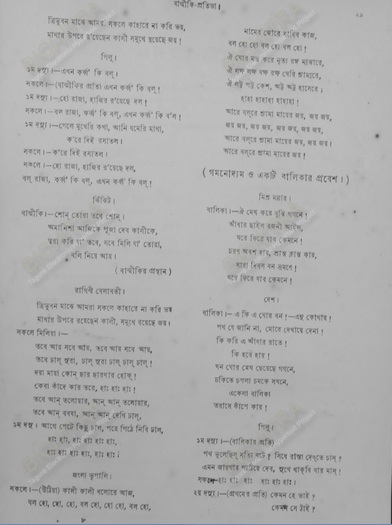 বাল্মীকি-প্রতিভা।
ত্রিভুবন মাঝে আমরা সকলে কাহারে না করি ভয়,
মাথার উপরে র'য়েছেন কালী সমুখে রয়েছে জয়!
পিলু।
১ম দস্যু।—এখন কর্ব্ব কি বল্।
সকলে।—(বাল্মীকির প্রতি) এখন কর্ব্ব কি বল্!
১ম দস্যু।—হো রাজা, হাজির র'য়েছে দল!
সকলে।—বল্ রাজা, কর্ব্ব কি বল্, এখন কর্ব্ব কি ব'ল্!
১ম দস্যু।—পেলে মুখেরি কথা, আনি যমেরি মাথা,
ক'রে দিই রসাতল!
সকলে।—ক'রে দিই রসাতল!
সকলে।—হো রাজা, হাজির র'য়েছে দল,
বল্ রাজা, কর্ব্ব কি বল্, এখন কর্ব্ব কি বল্!
ঝিঁঝিট।
বাল্মীকি।—শোন্ তোরা তবে শোন্।
অমানিশা আজিকে পূজা দেব কালীকে,
ত্বরা করি যা' তবে, সবে মিলি যা' তোরা,
বলি নিয়ে আয়।
(বাল্মীকির প্রস্থান)
রাগিণী বেলাবতী।
ত্রিভুবন মাঝে আমরা সকলে কাহারে না করি ভয়
মাথার উপরে রয়েছেন কালী, সমুখে রয়েছে জয়।
সকলে মিলিয়া।—
তবে আয় সবে আয়, তবে আয় সবে আয়,
তবে ঢাল্ সুরা, ঢাল্ সুরা ঢাল্ ঢাল্ ঢাল্!
দয়া মায়া কোন্ ছার ছারখার হোক্!
কেবা কাঁদে কার তরে, হাঃ হাঃ হাঃ!
তবে আন্ তলোয়ার, আন্ আন্ তলোয়ার,
তবে আন্ বরষা, আন্ আন্ দেখি ঢাল্,
১ম দস্যু। আগে পেটে কিছু ঢাল্, পরে পিঠে নিবি ঢাল্,
হাঃ হাঃ, হাঃ হাঃ হাঃ হাঃ,
হাঃ হাঃ হাঃ হাঃ হাঃ হাঃ।
জংলা ভূপালি।
সকলে।—(উঠিয়া) কালী কালী বলোরে আজ,
বল হো, হো, হো, বল হো, হো, বল হো,
নামের জোরে সাধিব কাজ,
বল হো হো বল হো বল হো!
ঐ ঘোর মত্ত করে নৃত্য রঙ্গ মাঝারে,
ঐ লক্ষ লক্ষ যক্ষ রক্ষ ঘেরি শ্যামারে,
ঐ লট্ট পট্ট কেশ, অট্ট অট্ট হাসেরে;
হাহা হাহাহা হাহাহা!
আরে বল্‌রে শ্যামা মায়ের জয়, জয় জয়,
জয় জয়, জয় জয়, জয় জয়, জয় জয়,
আরে বল্‌রে শ্যামা মায়ের জয়, জয় জয়।
আরে বল্‌রে শ্যামা মায়ের জয়!
(গমনোদ্যম ও একটী বালিকার প্রবেশ।)
মিশ্র মল্লার।
বালিকা।—ঐ মেঘ করে বুঝি গগনে!
আঁধার ছাইল রজনী আইল,
ঘরে ফিরে যাব কেমনে!
চরণ অবশ হায়, শ্রান্ত ক্লান্ত কায়,
সারা দিবস বন ভ্রমণে!
ঘরে ফিরে যাব কেমনে!
দেশ।
বালিকা।—এ কি এ ঘোর বন!—এনু কোথায়!
পথ যে জানি না, মোরে দেখায়ে দেনা!
কি করি এ আঁধার রাতে!
কি হবে হায়!
ঘন ঘোর মেঘ ছেয়েছে গগনে,
চকিতে চপলা চমকে সঘনে,
একেলা বালিকা
তরাসে কাঁপে কায়!
পিলু।
১ম দস্যু।—(বালিকার প্রতি)
পথ ভুলেছিস্ সত্যি বটে? সিধে রাস্তা দেখ্‌তে চাস্?
এমন জায়গায় পাঠিয়ে দেব, সুখে থাক্‌বি বার মাস্!
সকলে।—হাঃ হাঃ হাঃ হাঃ হাঃ হাঃ!
২য় দস্যু।—(প্রথমের প্রতি) কেমন হে ভাই?
কেমন সে ঠাঁই?